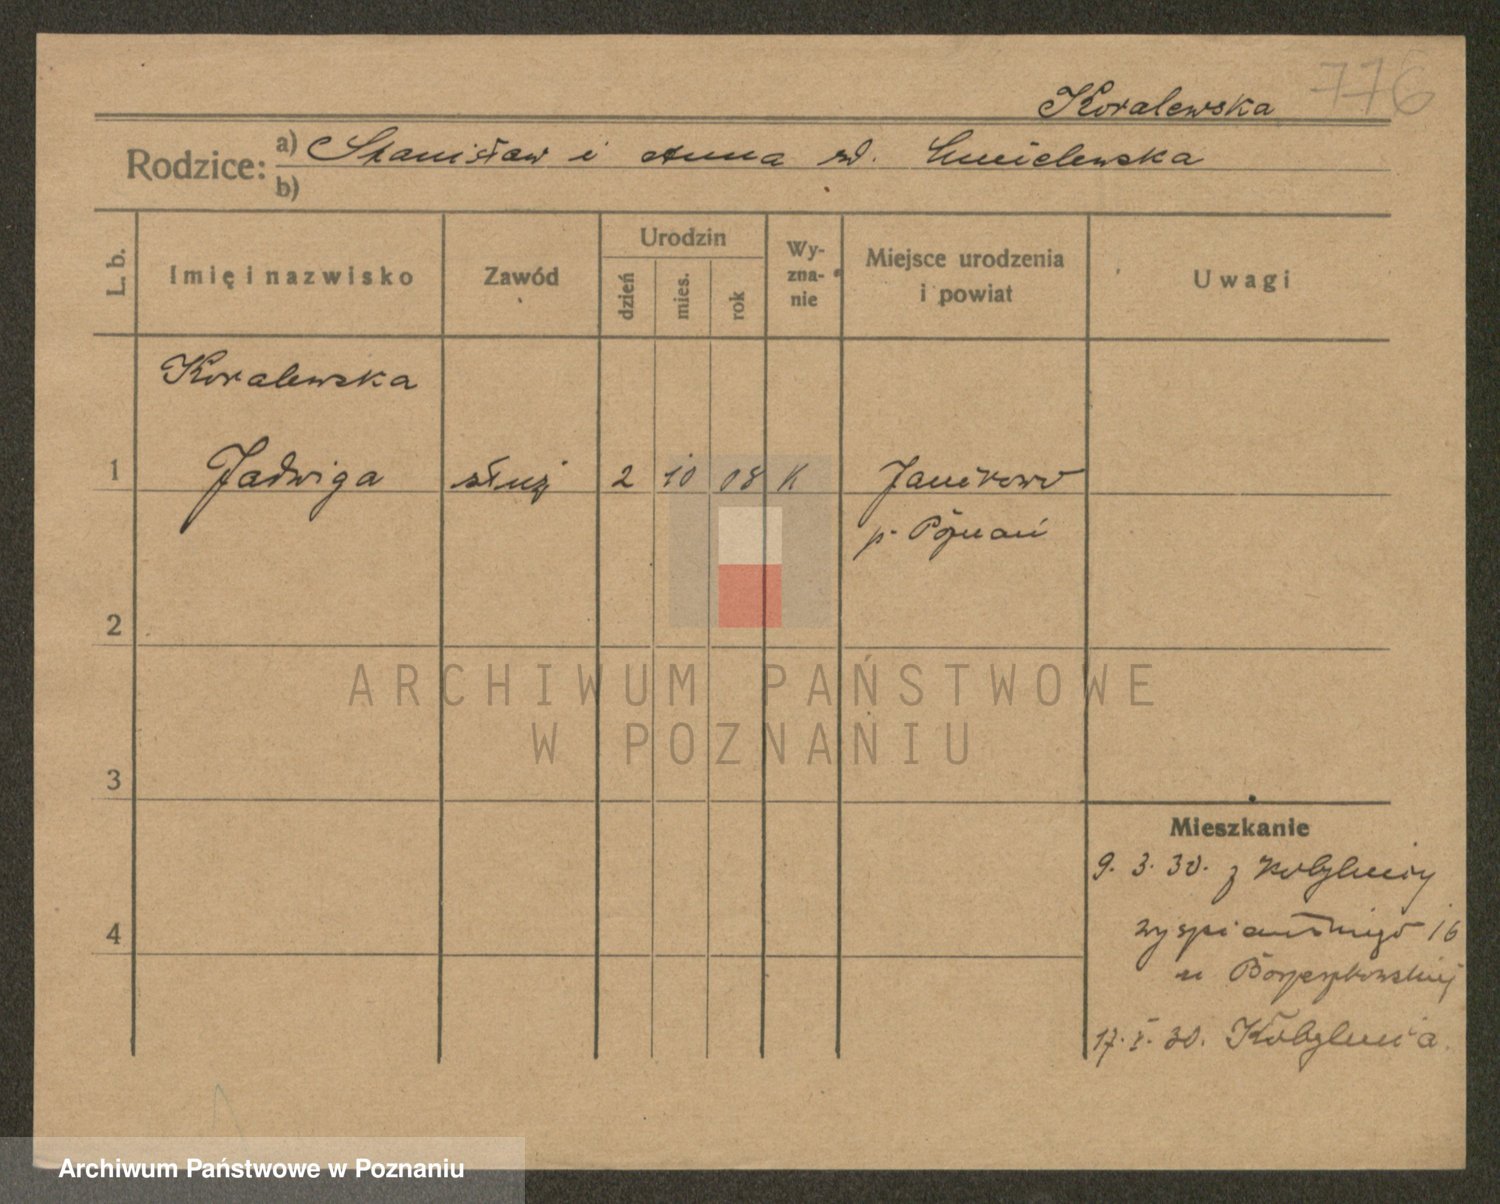 Koralewska 776
Rodzice: a) Stanisław i Anna zd.
b)
L. b.
Imię i nazwisko
Zawód
Urodzin
dzień
mies.
rok
Wy-
zna-
nie
Miejsce urodzenia
i powiat
Uwagi
Koralewska
1 Jadwiga służ 2 10 08 K Janikowo
p. Poznań
2
3
4
Mieszkanie
9. 3. 30. z Kobylnicy
Wyspiańskiego 16
u
17. 30. Kobylnica.
ARCHIWUM PAŃSTWOWE
W POZNANIU
Archiwum Państwowe w Poznaniu